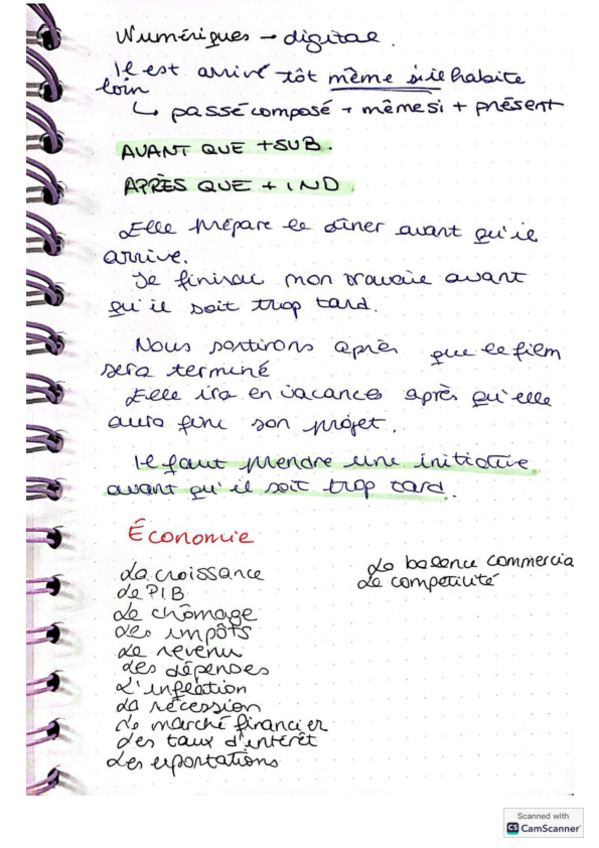 Numériques → digital.
Il est arrivé tôt même si il habite
loin
↳ passé composé + même si + présent
AVANT QUE + SUB.
APRÈS QUE + IND.
Elle prépare le dîner avant qu'il
arrive.
Je finirai mon travail avant
qu'il soit trop tard.
Nous sortirons après que le film
sera terminé
Elle ira en vacances après qu'elle
aura fini son projet.
Il faut prendre une initiative
avant qu'il soit trop tard.
Économie
La croissance
Le PIB
Le chômage
Les impôts
Le revenu
Les dépenses
L'inflation
La récession
Le marché financier
Les taux d'intérêt
Les exportations
La balance commercia
La compétitivité
Scanned with
CS CamScanner